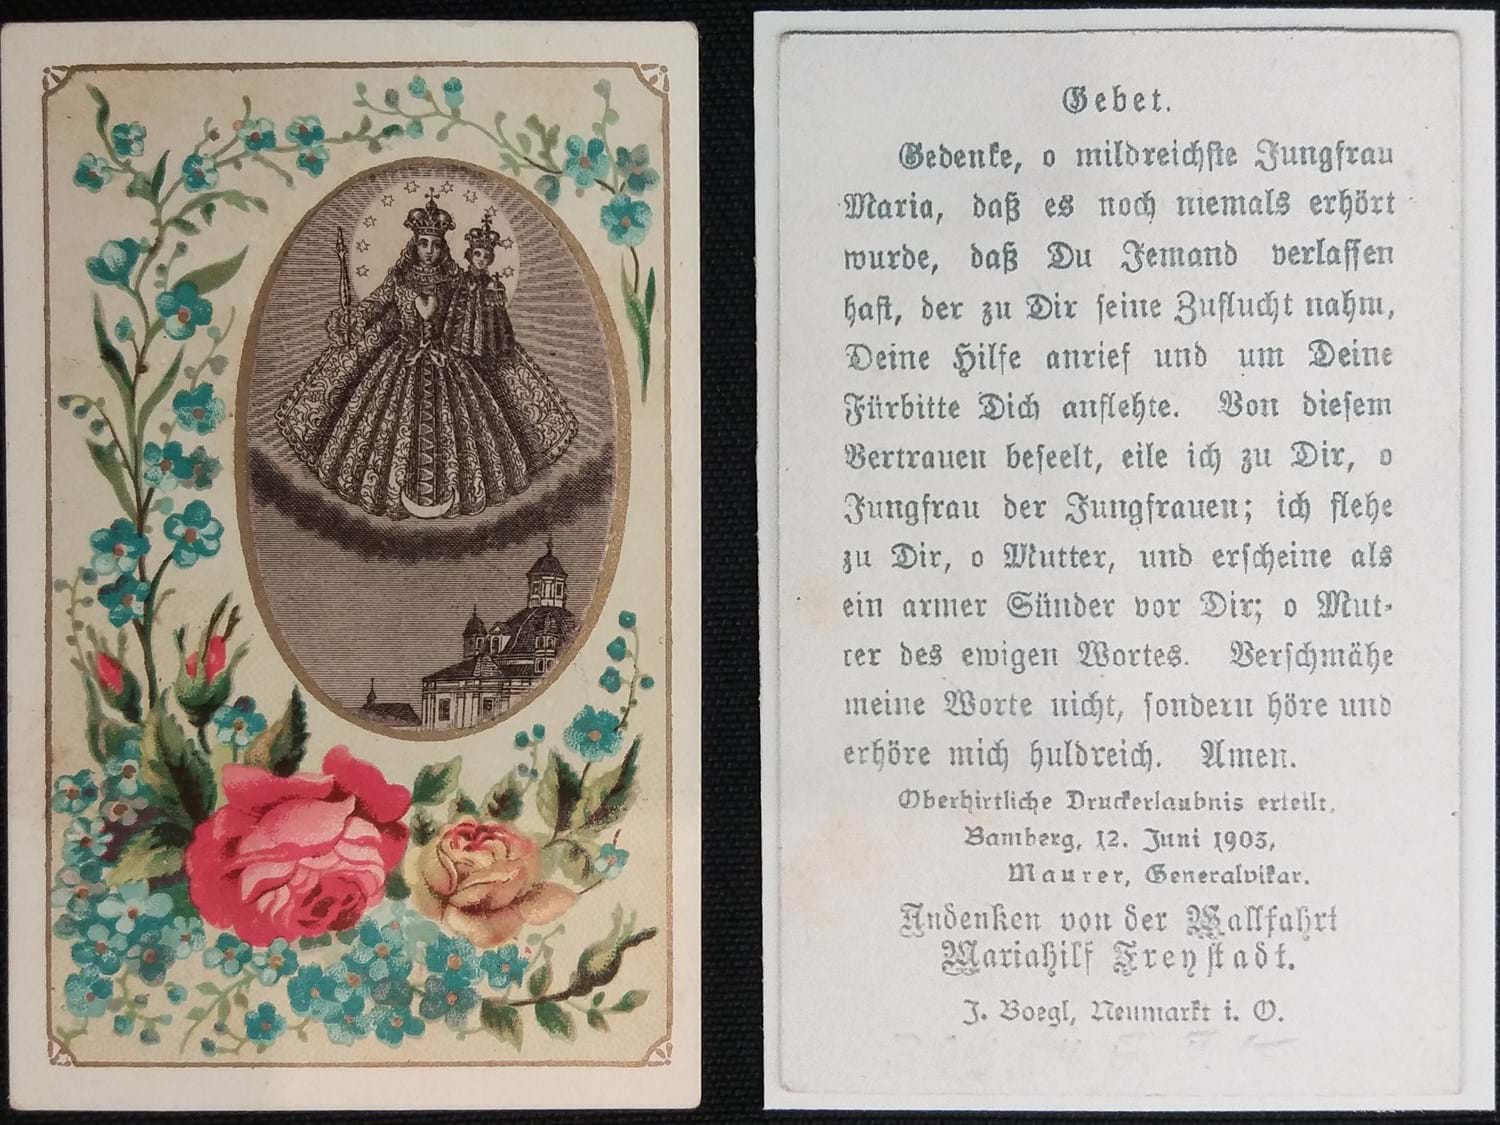 Gebet.
Gedenke, o mildreichste Jungfrau
Maria, daß es noch niemals erhört
wurde, daß Du Jemand verlassen
hast, der zu Dir seine Zuflucht nahm,
Deine Hilfe anrief und um Deine
Fürbitte Dich anflehte. Von diesem
Vertrauen beseelt, eile ich zu Dir, o
Jungfrau der Jungfrauen; ich flehe
zu Dir, o Mutter, und erscheine als
ein armer Sünder vor Dir; o Mut-
ter des ewigen Wortes. Verschmähe
meine Worte nicht, sondern höre und
erhöre mich huldreich. Amen.
Oberhirtliche Druckerlaubnis erteilt.
Bamberg, 12. Juni 1903,
Maurer, Generalvikar.
Andenken von der Wallfahrt
Mariahilf Freystadt.
J. Boegl, Neumarkt i. O.